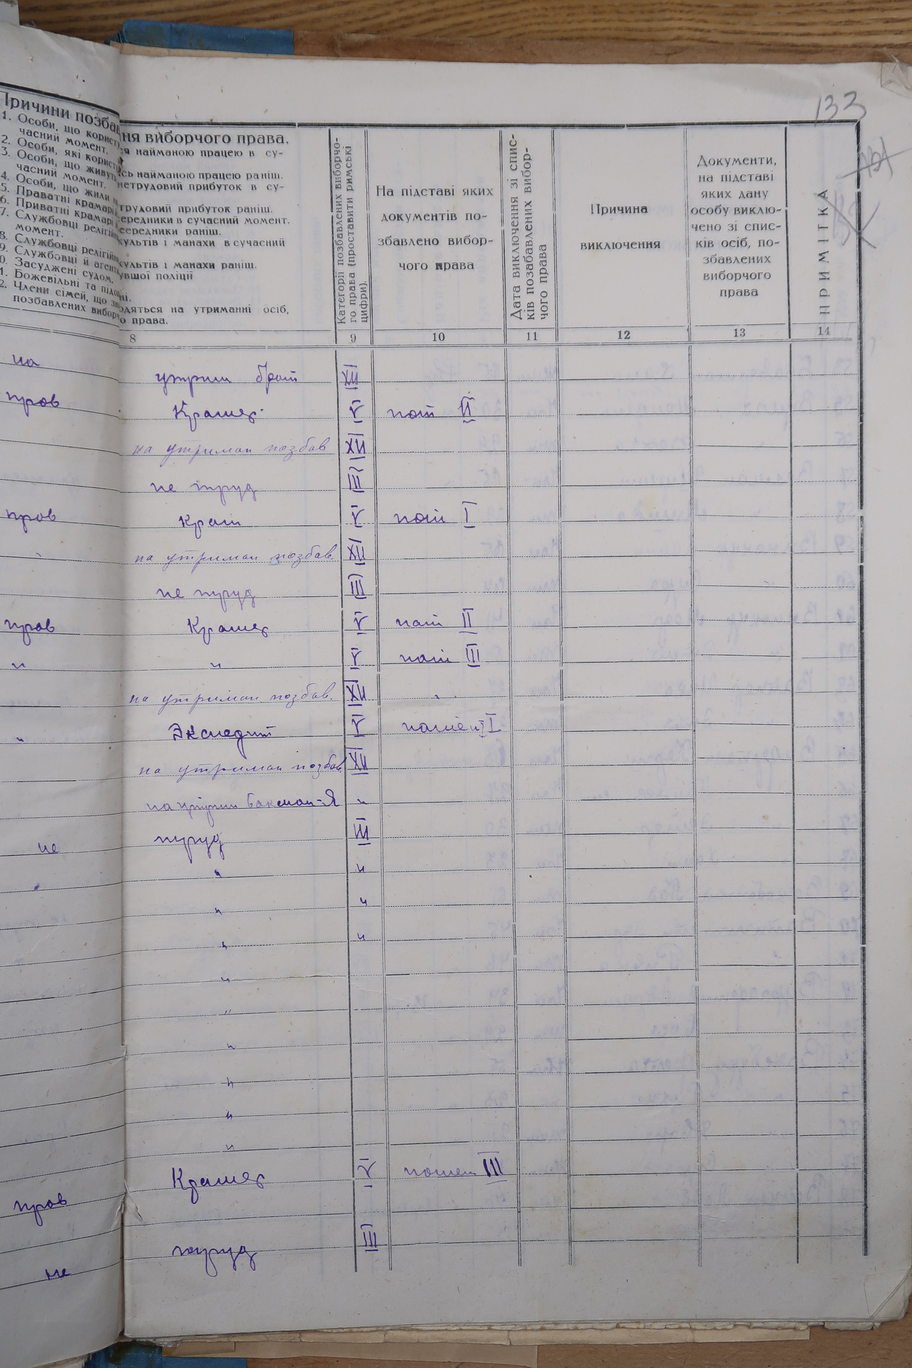 133
Причини позбавлення виборчого права.
1. Особи, що корист ся найманою працею в су-
часний момент.
2. Особи, які корист сь найманою працею раніш.
3. Особи, що живуть нетрудовий прибуток в су-
часний момент.
4. Особи, що жили трудовий прибуток раніш.
5. Праватні крамарі середники в сучасний момент.
6. Приватні крамарі середники раніш.
7. Службовці релігійн культів і манахи в сучасний
момент.
8. Службовці релігійн культів і манахи раніш.
9. Службовці й агенти бувшої поліції
0. Засуджені судом.
1. Божевільні та підо ні.
2. Члени сімей, що зна одяться на утриманні осіб,
позбавлених виборчо о права.
Категорії позбавлених виборчо-
го права (проставити римські
цифри).
На підставі яких
документів по-
збавлено вибор-
чого права
Дата виключення зі спис-
ків позабавлених вибор-
чого права
Причина
виключення
Документи,
на підставі
яких дану
особу виклю-
чено зі спис-
ків осіб, по-
збавлених
виборчого
права
ПРИМІТКА
8 9 10 11 12 13 14
на утрим брат XII
пров Крамер V пат II
на утриман позбав XII
не труд III
пров Крам V пат I
" на утриман позбав. XII
не труд III
прав Крамер V пат II
" " V пат III
на утриман позбав. XII "
" Экспедит V патент I
на утриман позбав XII
на утрим "
не труд III
" " "
" "
" "
"
"
"
"
"
"
пров Крамер V патент III
не труд III